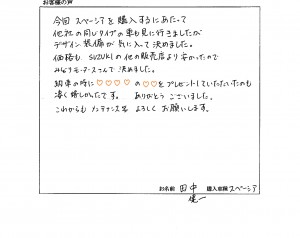 お客様の声
今回 スペーシア を 購入するにあたって
他社の同じタイプの車も見に行きましたが
デザイン、装備が気に入って決めました。
価格も SUZUKIの他の販売店より安かったので
さんで決めました。
納車の時に ♡♡♡♡ の ♡♡ をプレゼントしていただいたのも
凄く嬉しかったです。 ありがとうございました。
これからもメンテナンス等 よろしくお願いします。
お名前 田中 購入車種 スペーシア